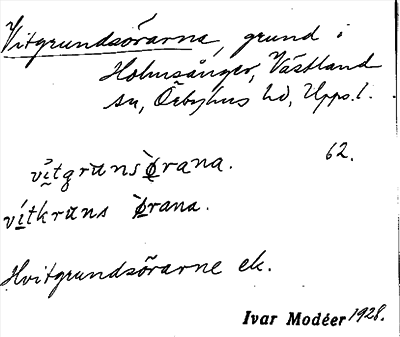 Vitgrundsörarna, grund i
Holmsånger, Västland
sn, Örbyhus hd, Upps. l.
62.
vi̯tgruns ò̱rana.
vítkruns ò̱rana.
Hvitgrundsörarne ek.
Ivar Modéer 1928.